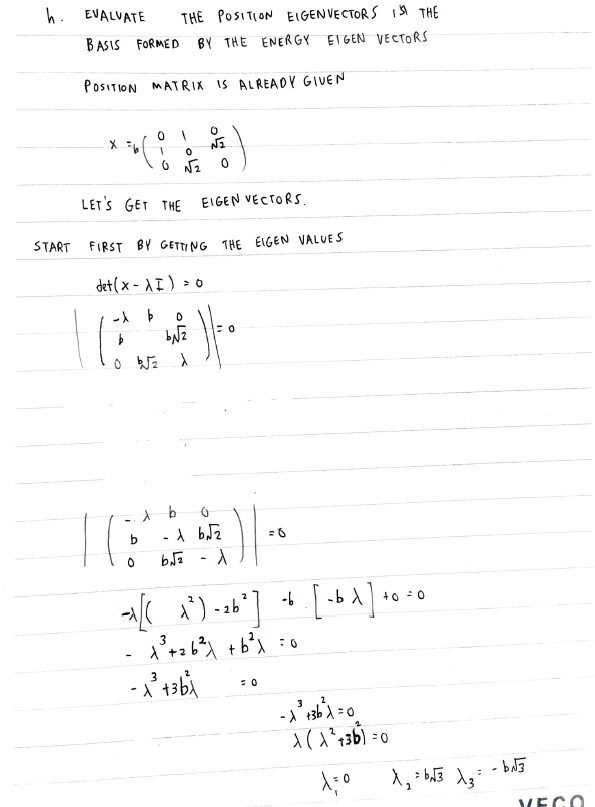 h. EVALUATE THE POSITION EIGENVECTORS IN THE
BASIS FORMED BY THE ENERGY EIGEN VECTORS
POSITION MATRIX IS ALREADY GIVEN
X = b ( 0 1 0
1 0 √2
0 √2 0 )
LET'S GET THE EIGEN VECTORS.
START FIRST BY GETTING THE EIGEN VALUES
det(x - λI) = 0
| ( -λ b 0
b b√2
0 b√2 λ ) | = 0
| ( -λ b 0
b -λ b√2
0 b√2 -λ ) | = 0
-λ[( λ²) - 2b²] -b [-bλ] +0 = 0
- λ³ + 2b²λ + b²λ = 0
- λ³ + 3b²λ = 0
-λ³ + 3b²λ = 0
λ(λ² + 3b²) = 0
λ₁ = 0 λ₂ = b√3 λ₃ = - b√3
VECO